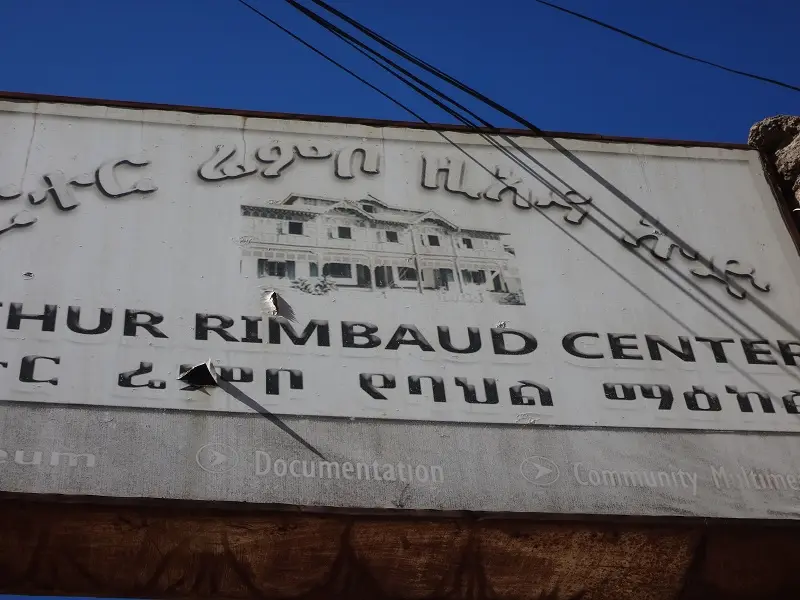 ሬምቦ
THUR RIMBAUD CENTER
ር ሬምቦ የባህል ማዕከል
eum Documentation Community Multime